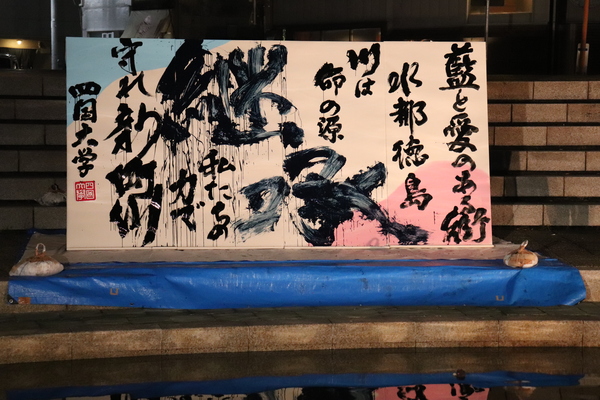 藍と愛のある街
水都徳島
川は
命の源
私たちの
力で
守れ
四国大学